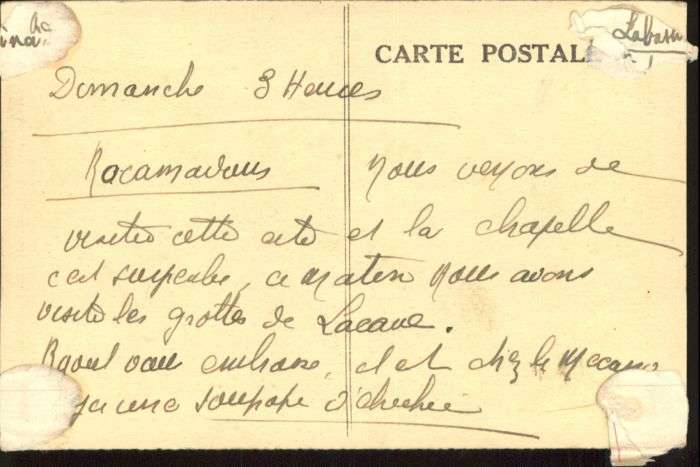 Labarr
CARTE POSTALE
Dimanche 3 Heures
Rocamadour Nous venons de
visiter cette cité et la chapelle
c'est superbe, ce matin Nous avons
visité les grottes de Lacave.
Raoul vous embrasse, il est chez le Mecano
une soupape d'échée